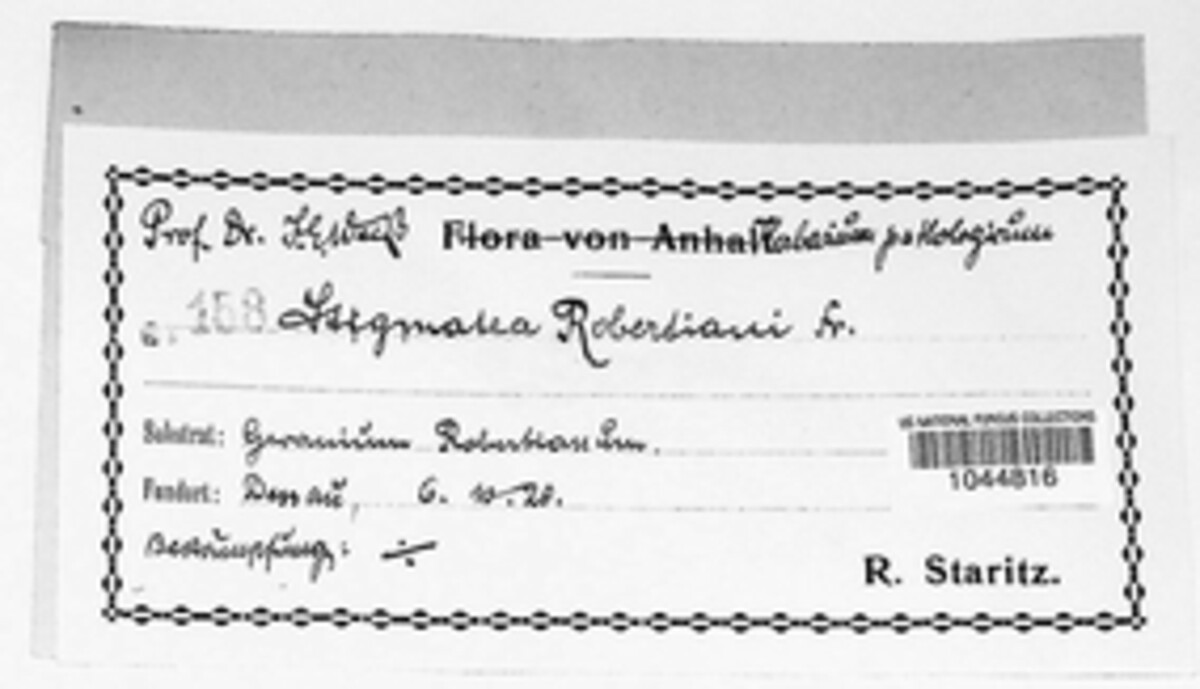 Prof. Dr. Flora von Anhalt pathologicum
158 Stigmatea Robertiani Fr.
Substrat: Geranium Robertianum.
US NATIONAL FUNGUS COLLECTIONS
1044816
Fundort: Dessau, 6. 10. 20.
Bekämpfung: ÷
R. Staritz.